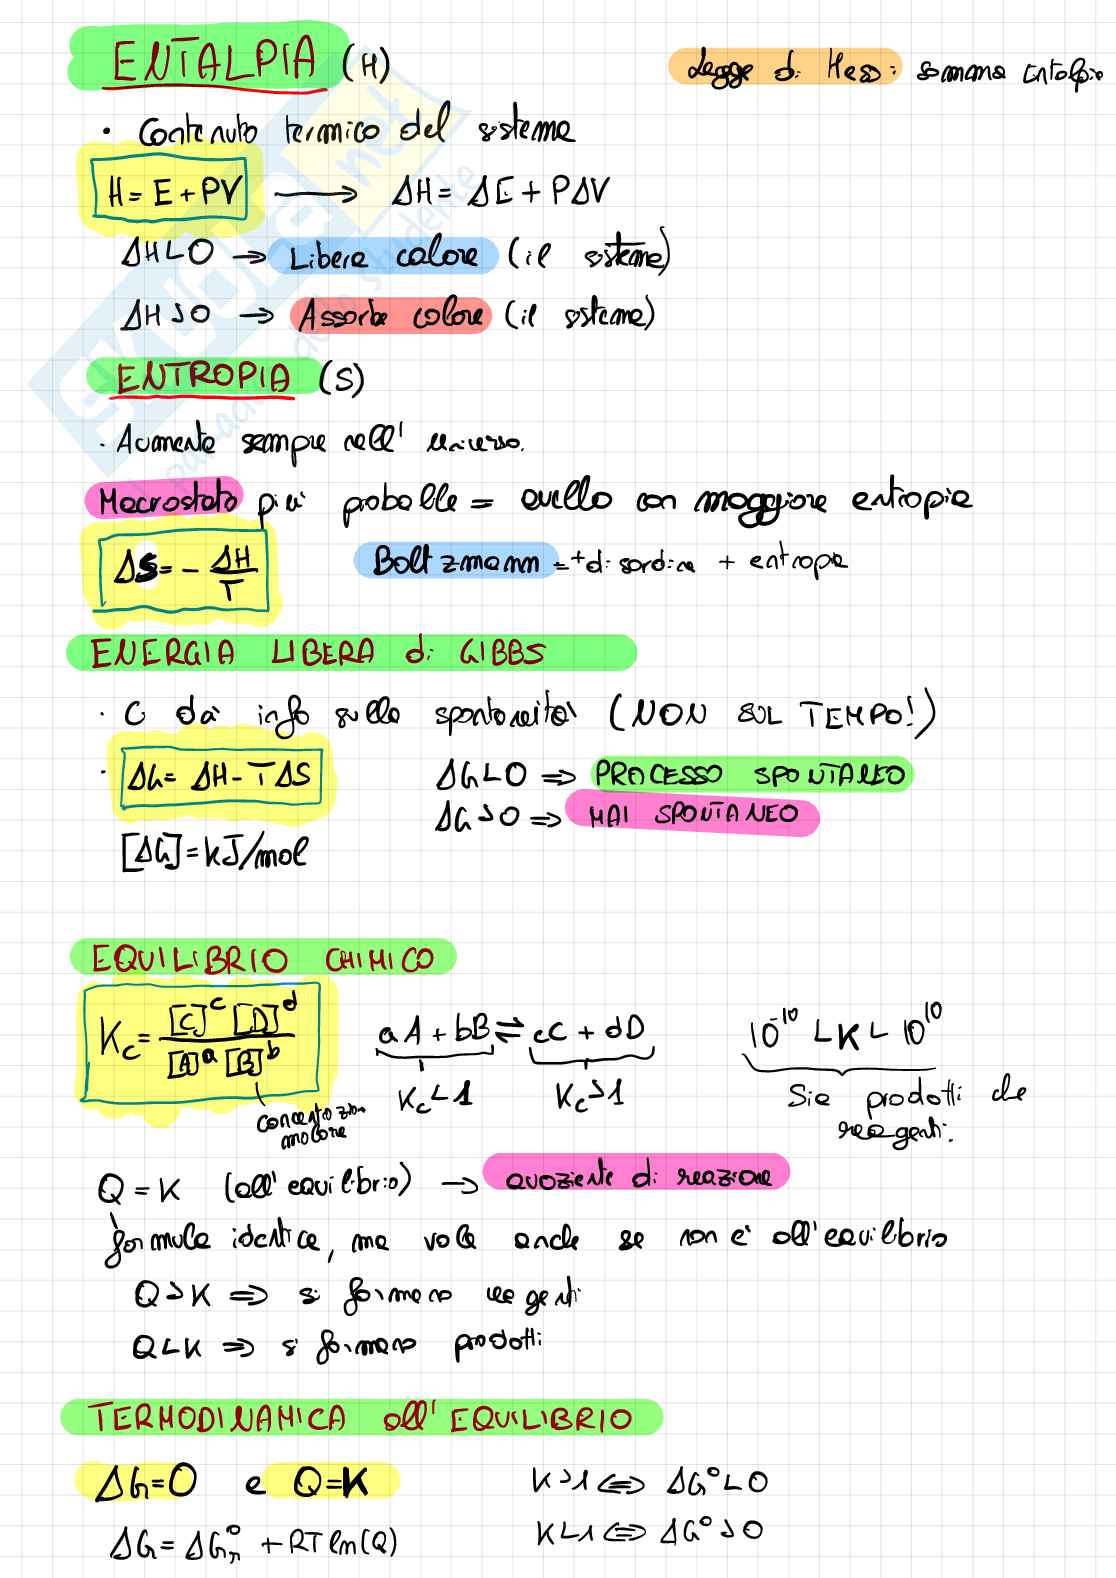 ENTALPIA (H)
Legge di Hess: somma entalpie
• Contenuto termico del sistema
H = E + PV → ΔH = ΔE + PΔV
ΔH < 0 → Libera calore (il sistema)
ΔH > 0 → Assorbe calore (il sistema)
ENTROPIA (S)
· Aumenta sempre nell' universo.
Macrostato più probabile = quello con maggiore entropia
ΔS = - ΔH/T
Boltzmann = + disordine + entropia
ENERGIA LIBERA di GIBBS
· Ci dà info sulla spontaneità (NON SUL TEMPO!)
· ΔG = ΔH - TΔS
ΔG < 0 ⇒ PROCESSO SPONTANEO
ΔG > 0 ⇒ MAI SPONTANEO
[ΔG] = kJ/mol
EQUILIBRIO CHIMICO
Kc = [C]^c [D]^d / [A]^a [B]^b
aA + bB ⇌ cC + dD
10^-10 < K < 10^10
Kc < 1 Kc > 1
Sia prodotti che
reagenti.
concentrazione
molare
Q = K (all'equilibrio) → quoziente di reazione
formula identica, ma vale anche se non è all'equilibrio
Q > K ⇒ si formano reagenti
Q < K ⇒ si formano prodotti
TERMODINAMICA all'EQUILIBRIO
ΔG = 0 e Q = K
K > 1 ⇔ ΔG° < 0
ΔG = ΔG°r + RT ln(Q)
K < 1 ⇔ ΔG° > 0